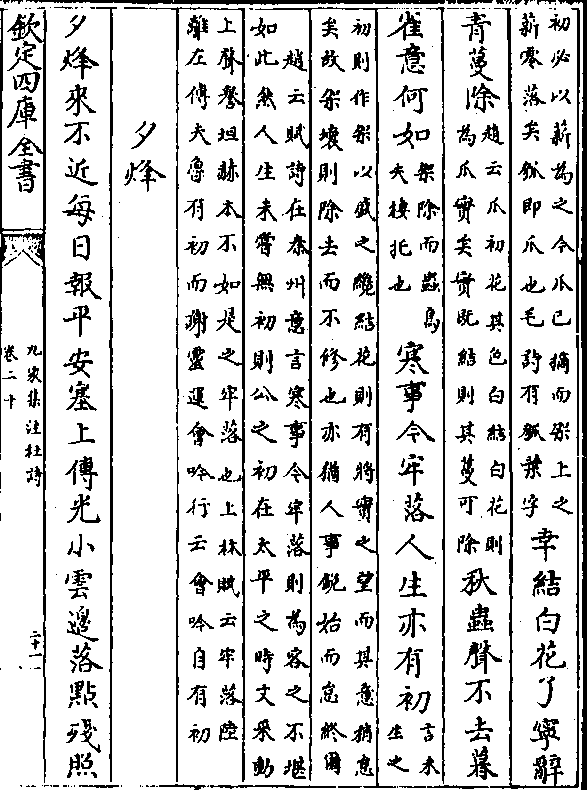 初必以薪為之今瓜已摘而架上之
薪零落矣瓠即瓜也毛詩有瓠葉字
幸結白花了寧辭
青蔓除
趙云瓜初花其色白結白花則
為瓜實矣實既結則其蔓可除
秋蟲聲不去暮
雀意何如
架除而蟲鳥
失棲托也
寒事今牢落人生亦有初
言未
生之
初則作架以盛之纔結花則有將實之望而其意稍怠
矣故架壞則除去而不修也亦猶人事銳始而怠終爾
趙云賦詩在秦州意言寒事今牢落則為客之不堪
如此然人生未嘗無初則公之初在太平之時文采動
上聲譽坦赫本不如是之牢落也上林賦云牢落陸
離左傳夫魯有初而謝靈運會吟行云會吟自有初
夕烽
夕烽來不近每日報平安塞上傳光小雲邊落點殘照
欽定四庫全書
九家集注杜詩
卷二十
二十一